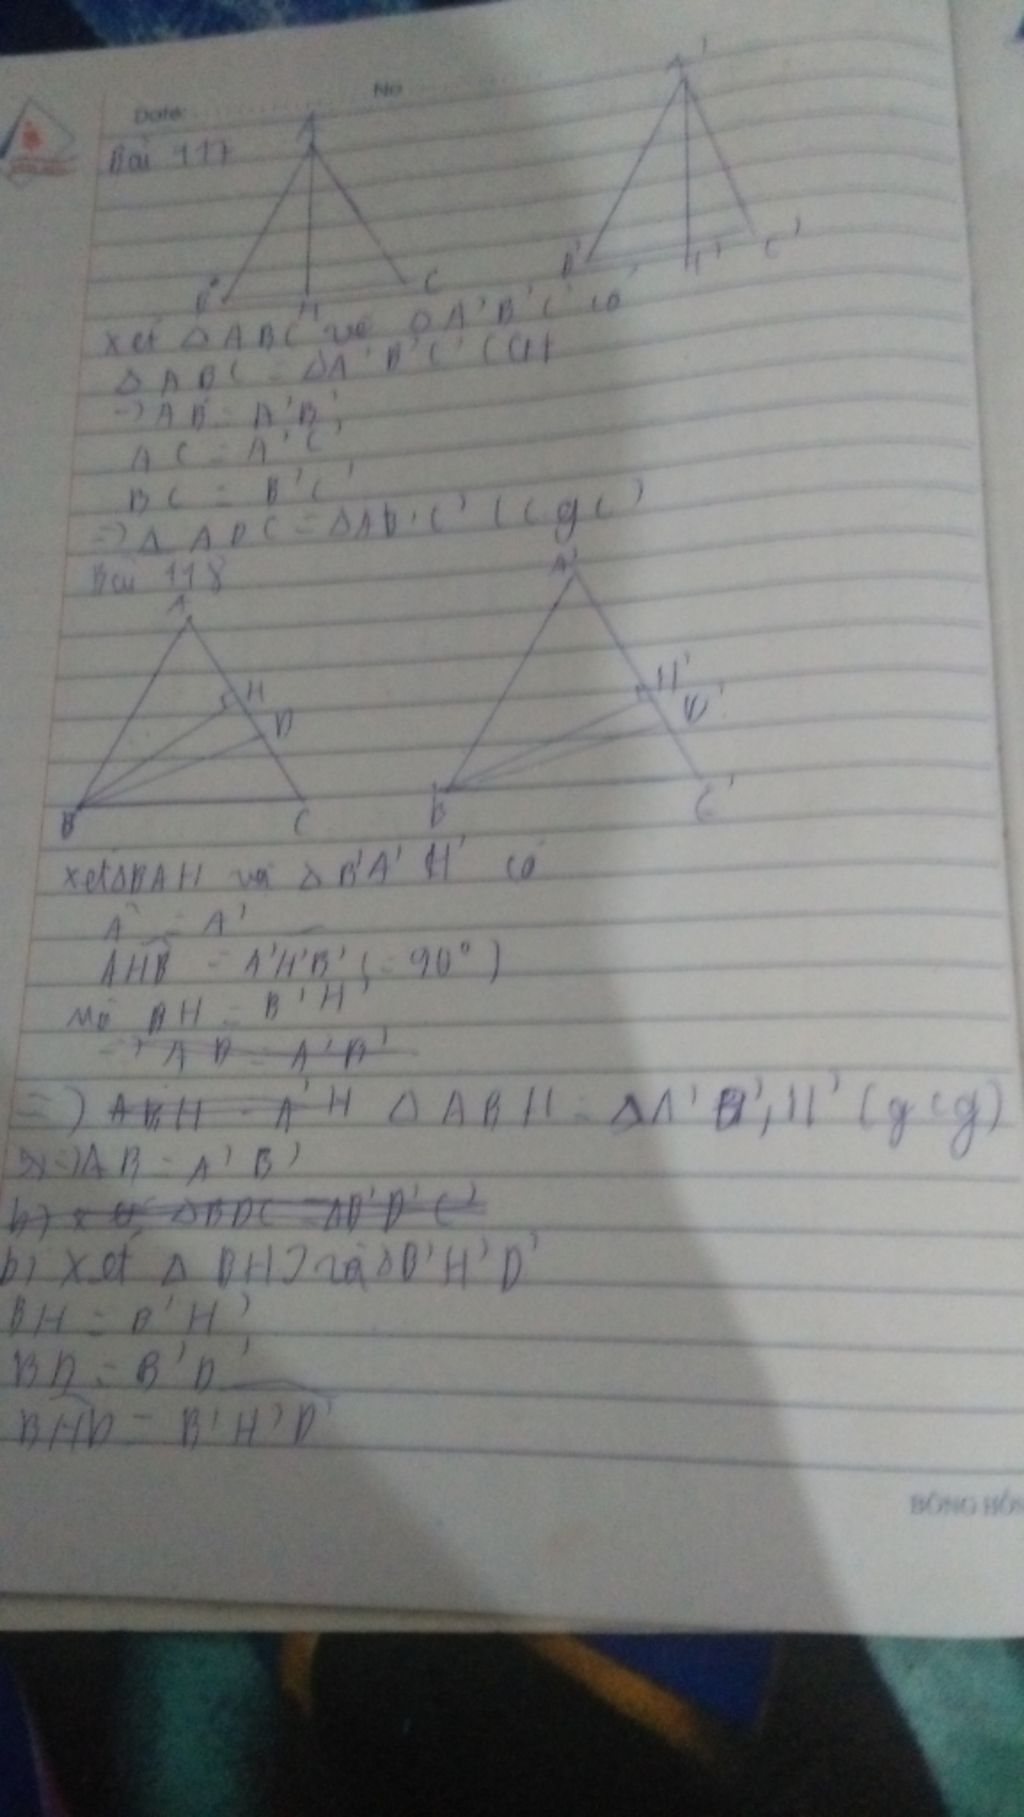 Date: No
Bài 117
A A'
B H C B' H' C'
xét △ABC và △A'B'C' có
△ABC = △A'B'C' (GT
=> AB = A'B'
AC = A'C'
BC = B'C'
=> △ABC = △A'B'C' (c g c)
Bài 118
A A'
H H'
D D'
B C B C'
xét △BAH và △B'A'H' có
A = A'
AHB = A'H'B' (= 90°)
Mà BH = B'H'
=> AB = A'B'
=> ABH = A'H △ABH = △A'B'H' (g c g)
=> AB = A'B'
b) xét △BDC = △B'D'C'
b) xét △BHD và △B'H'D'
BH = B'H'
BD = B'D'
BHD = B'H'D'